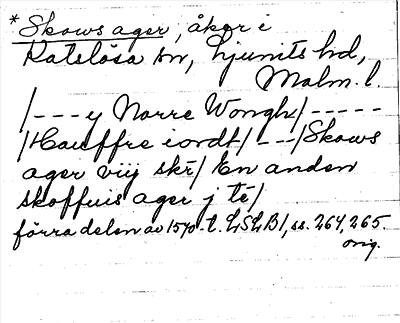 * Skows ager, åker i
Katslösa sn, Ljunits hd,
Malm. l.
/---y Norre Wongh/-----
/Hauffre iordt/---/Skows
ager viij skr/ En anden
skoffuis ager j te/
förra delen av 1570-t. LSLB1, ss. 264, 265.
orig.